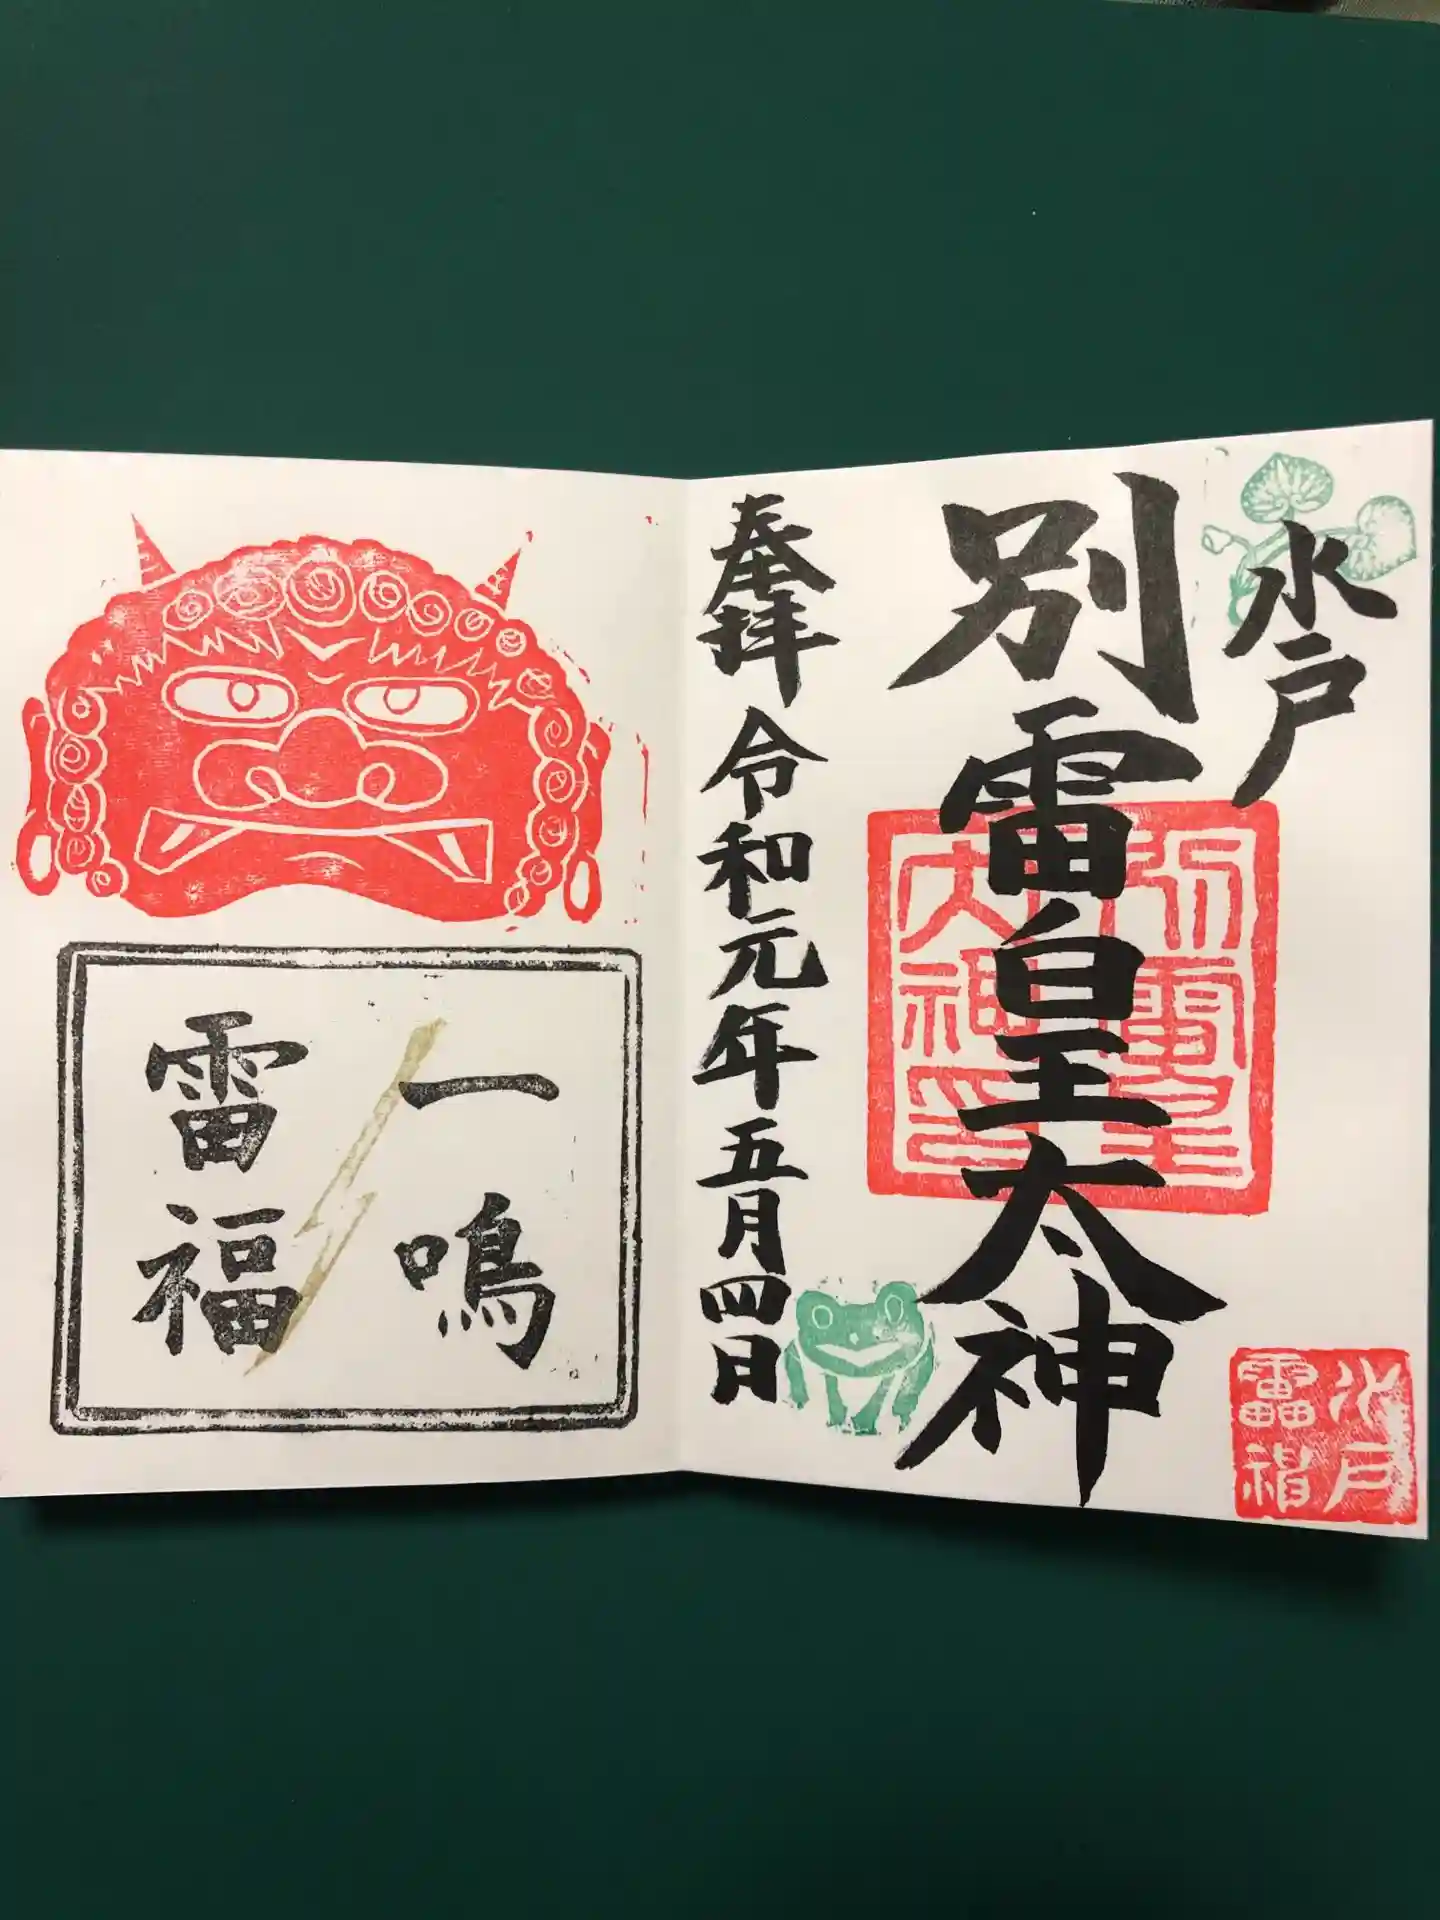 水戸
別雷皇太神
別雷皇
大神印
水戸
雷神
奉拝 令和元年五月四日
一鳴
雷福